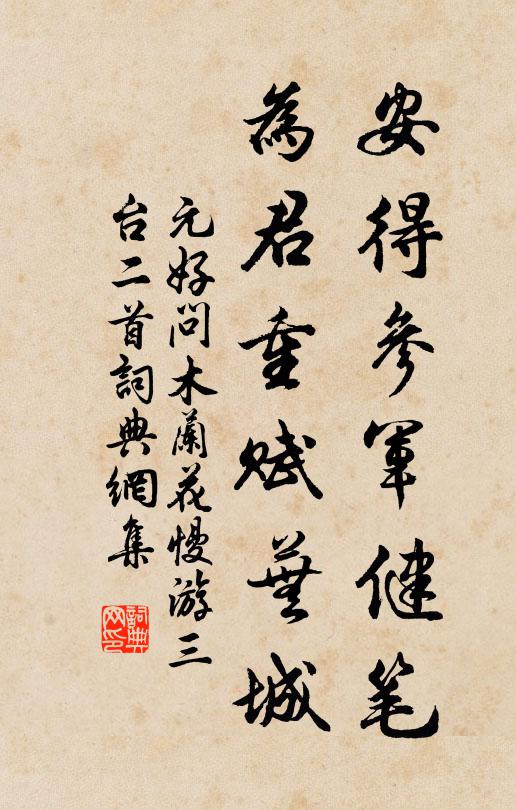 安得參軍健笔
為君重賦蕪城
元好問木蘭花慢游三
台二首詞典網集
詞典
网印